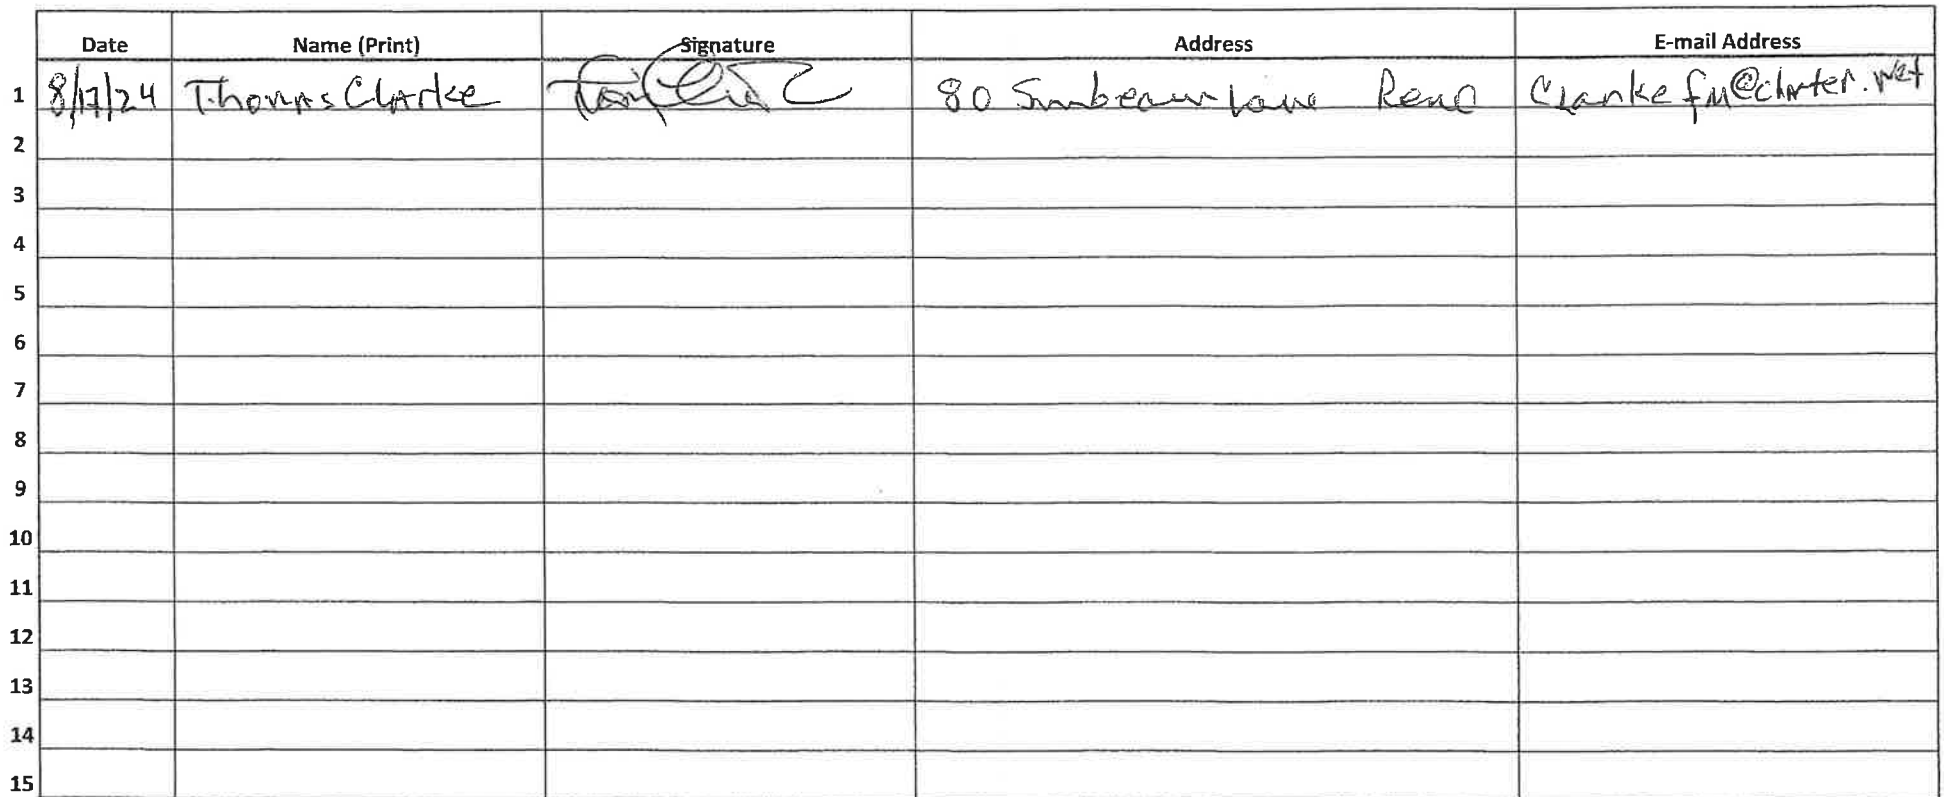 Date Name (Print) Signature Address E-mail Address
1 8/17/24 Thomas Clarke 80 Sunbeam Lane Reno Clarkefm@charter.net
2
3
4
5
6
7
8
9
10
11
12
13
14
15